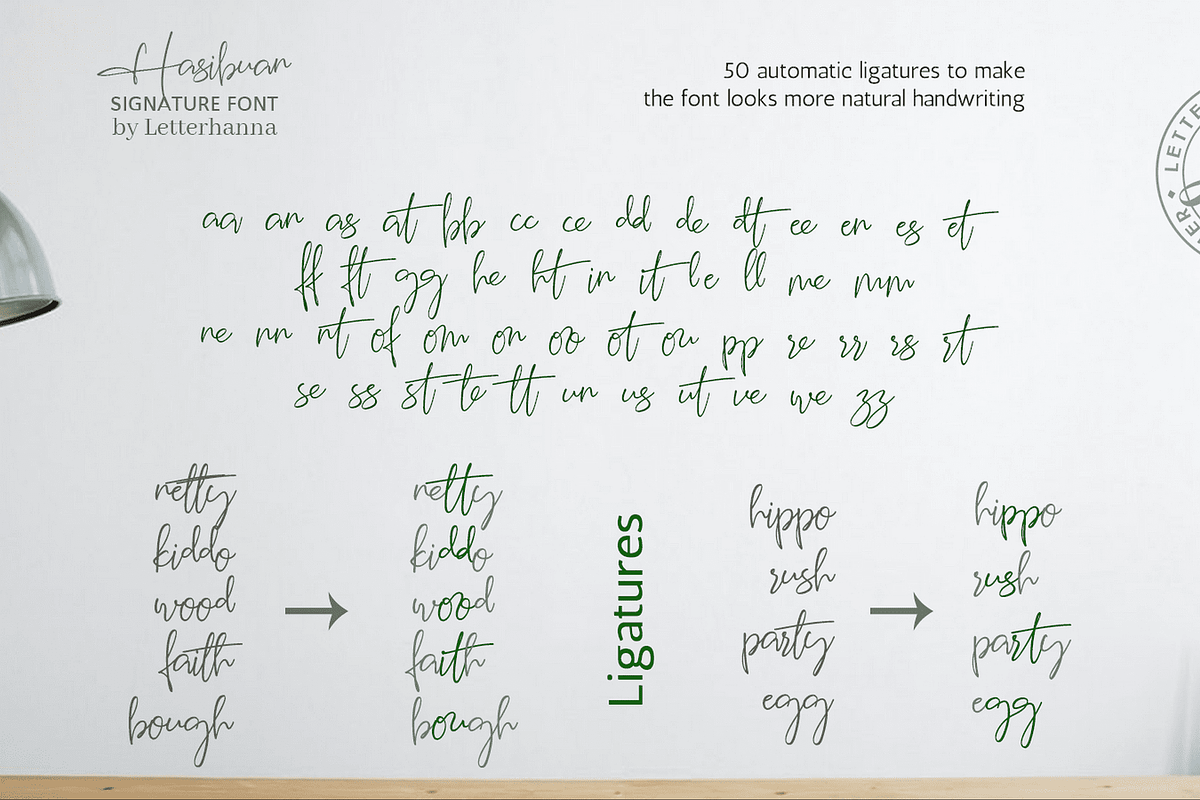 Hasibuan
SIGNATURE FONT
by Letterhanna
50 automatic ligatures to make
the font looks more natural handwriting
LETTE
ER
aa an as at bb cc ce dd de dt ee en es et
ff ft gg he ht in it le ll me mm
ne nn nt of om on oo ot ou pp re rr rs rt
se ss st te tt un us ut ve we zz
netty
kiddo
wood
faith
bough
netty
kiddo
wood
faith
bough
Ligatures
hippo
rush
party
egg
hippo
rush
party
egg